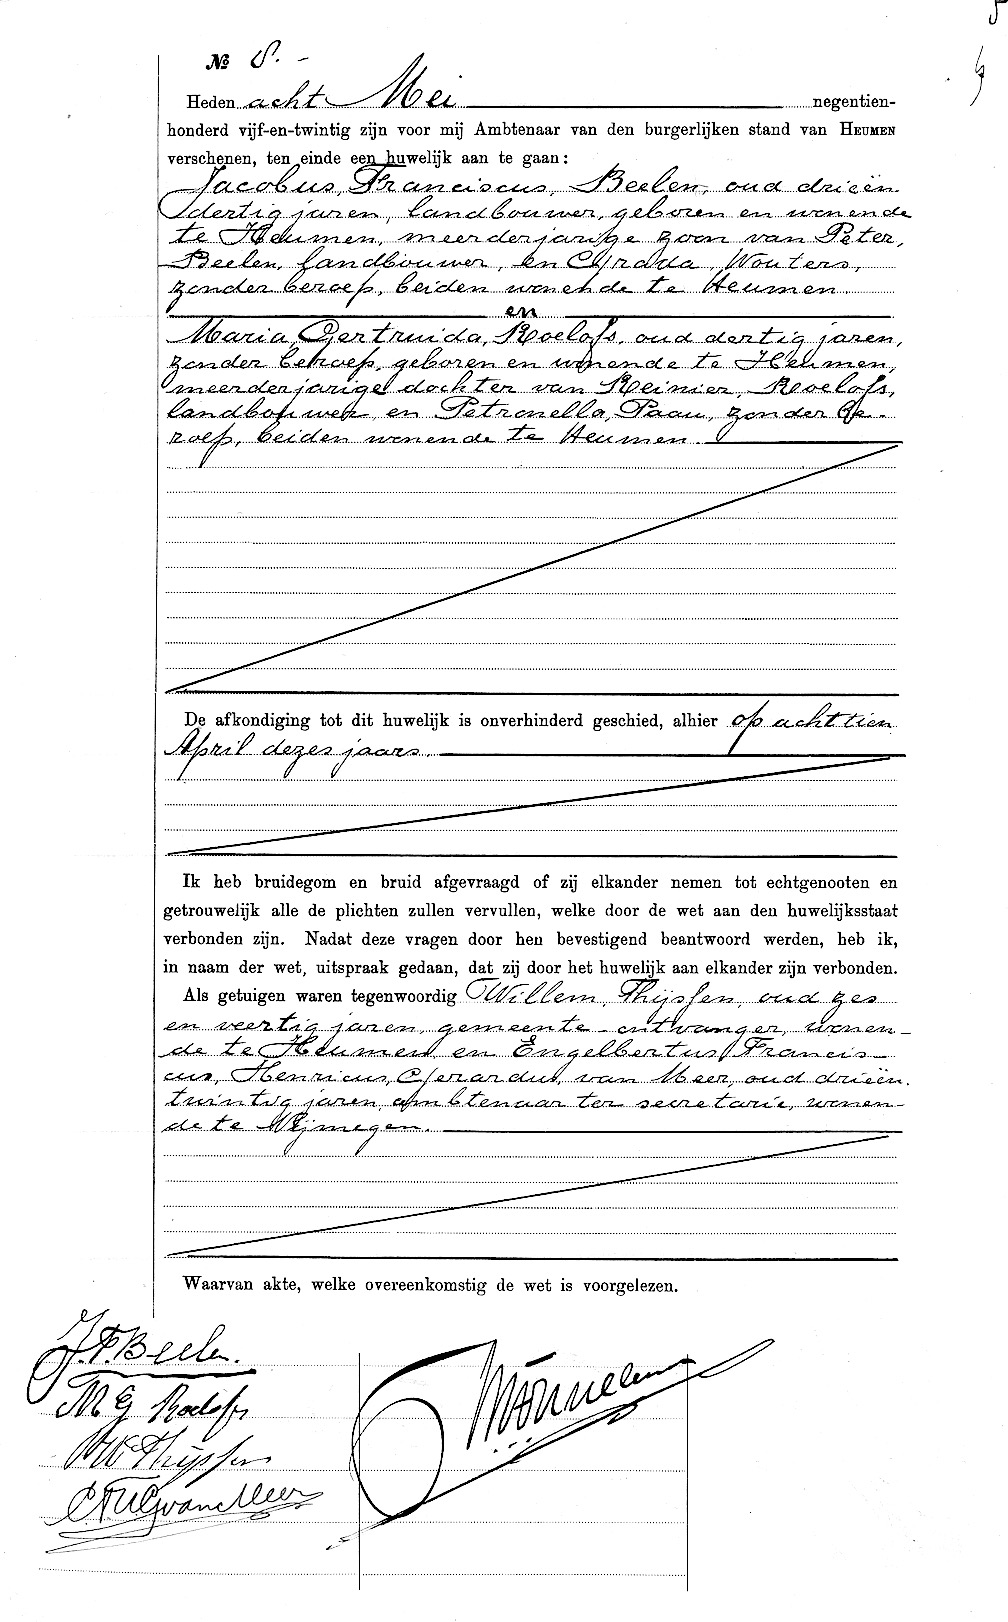 № 8.-
Heden acht Mei negentien-
honderd vijf-en-twintig zijn voor mij Ambtenaar van den burgerlijken stand van HEUMEN
verschenen, ten einde een huwelijk aan te gaan:
Jacobus, Franciscus, Beelen, oud drieën
dertig jaren, landbouwer, geboren en wonende
te Heumen, meerderjarige zoon van Peter,
Beelen, landbouwer, en Gerada, Wouters,
zonder beroep, beiden wonende te Heumen.
en
Maria, Gertruida, Roelofs, oud dertig jaren,
zonder beroep, geboren en wonende te Heumen,
meerderjarige dochter van Reinier, Roelofs,
landbouwer en Petronella, Paau, zonder be-
roep, beiden wonende te Heumen.
De afkondiging tot dit huwelijk is onverhinderd geschied, alhier op achttien
April dezes jaars.
Ik heb bruidegom en bruid afgevraagd of zij elkander nemen tot echtgenooten en
getrouwelijk alle de plichten zullen vervullen, welke door de wet aan den huwelijksstaat
verbonden zijn. Nadat deze vragen door hen bevestigend beantwoord werden, heb ik,
in naam der wet, uitspraak gedaan, dat zij door het huwelijk aan elkander zijn verbonden.
Als getuigen waren tegenwoordig Willem, Thijssen, oud zes
en veertig jaren, gemeente-ontvanger, wonen-
de te Heumen en Engelbertus, Francis-
cus, Henricus, Gerardus, van Meer, oud drieën
twintig jaren, ambtenaar ter secretarie, wonen-
de te Nijmegen.
Waarvan akte, welke overeenkomstig de wet is voorgelezen.
J.F. Beelen.
M G Roelofs
W Thijssen
van Meer